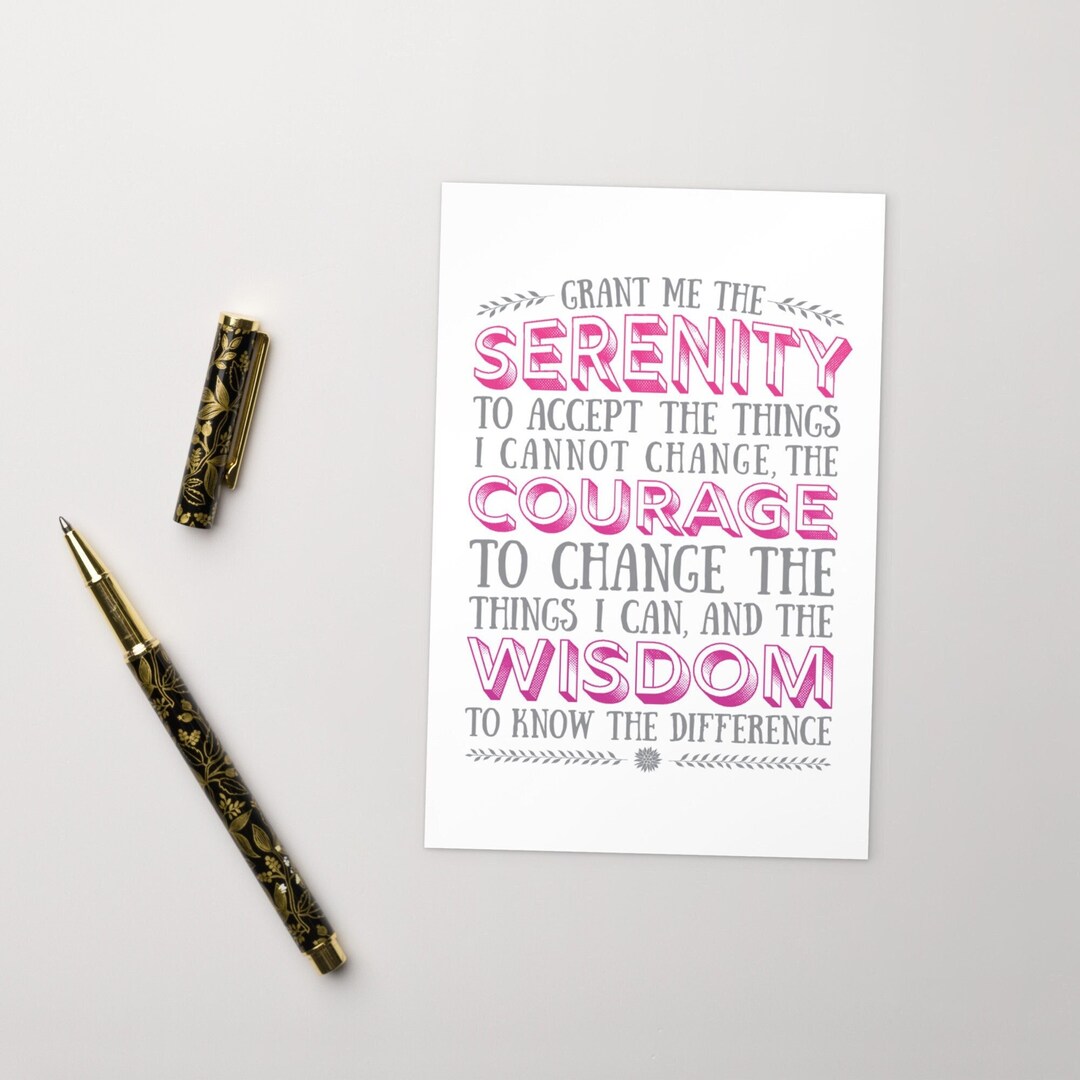 GRANT ME THE
SERENITY
TO ACCEPT THE THINGS
I CANNOT CHANGE, THE
COURAGE
TO CHANGE THE
THINGS I CAN, AND THE
WISDOM
TO KNOW THE DIFFERENCE